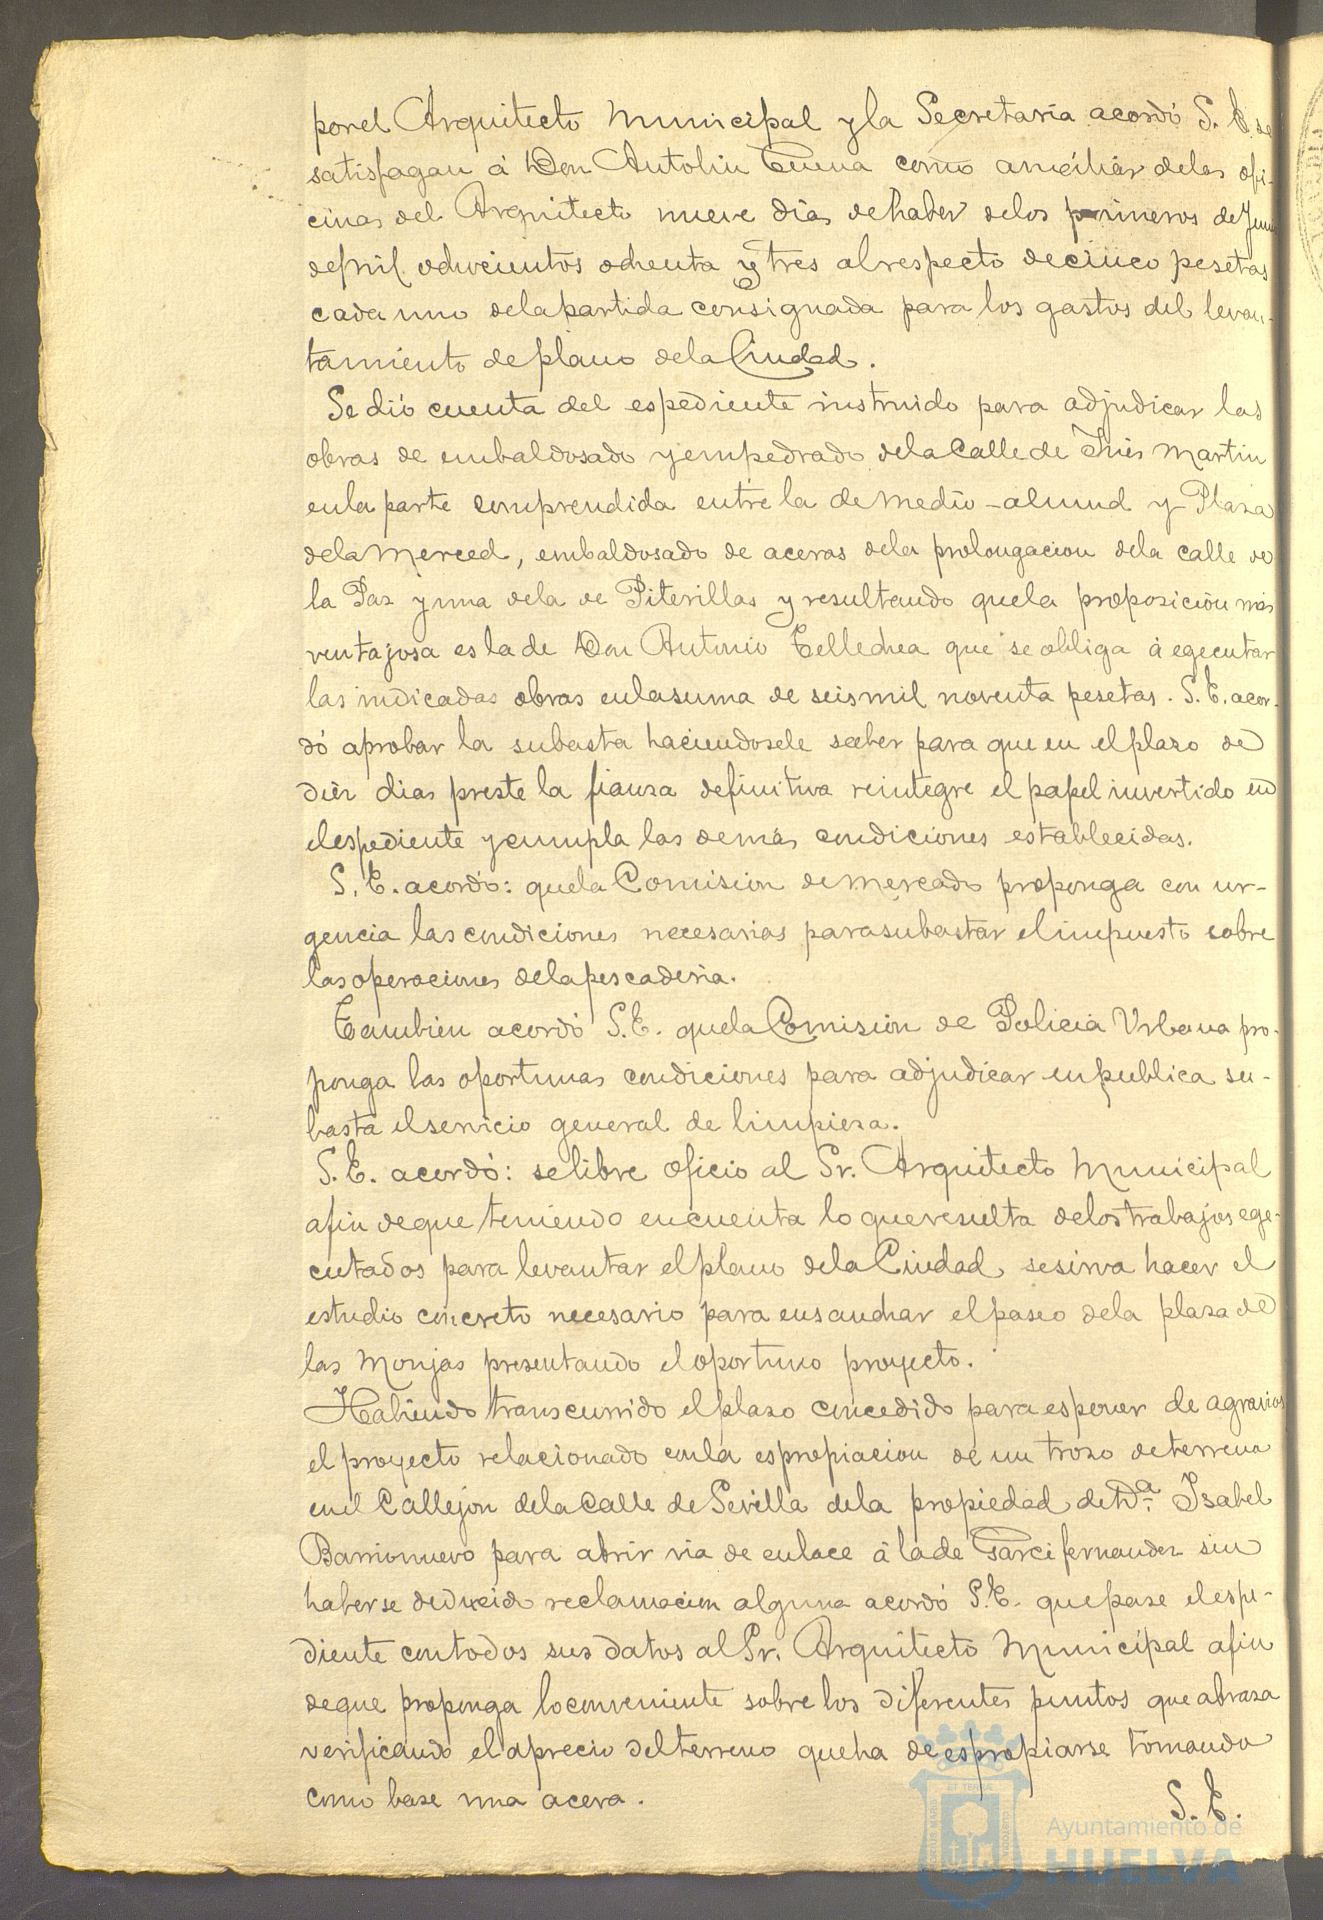 por el Arquitecto Municipal y la Secretaria acordó S. E. se
satisfagan á Don Antolin Cuena como auxiliar de las ofi-
cinas del Arquitecto nueve dias de haber de los primeros de Junio
de mil ochocientos ochenta y tres al respecto de cinco pesetas
cada uno de la partida consignada para los gastos del levan-
tamiento de plano de la Ciudad.
Se dió cuenta del espediente instruido para adjudicar las
obras de embaldosado y empedrado de la Calle de Inés Martin
en la parte comprendida entre la de Medio-almud y Plaza
de la Merced, embaldosado de aceras de la prolongacion de la calle de
la Paz y una de la de Piterillas y resultando que la proposición más
ventajosa es la de Don Antonio Tellechea que se obliga á egecutar
las indicadas obras en la suma de seis mil noventa pesetas. S. E. acor-
dó aprobar la subasta haciendosele saber para que en el plazo de
diez dias preste la fianza definitiva reintegre el papel invertido en
el espediente y cumpla las demás condiciones establecidas.
S. E. acordó: que la Comisión de Mercado proponga con ur-
gencia las condiciones necesarias para subastar el impuesto sobre
las operaciones de la pescaderia.
Tambien acordó S. E. que la Comisión de Policia Urbana pro-
ponga las oportunas condiciones para adjudicar en publica su-
basta el servicio general de limpieza.
S. E. acordó: se libre oficio al Sr. Arquitecto Municipal
afin de que teniendo en cuenta lo que resulta de los trabajos ege-
cutados para levantar el plano de la Ciudad, se sirva hacer el
estudio concreto necesario para ensanchar el paseo de la plaza de
las Monjas presentando el oportuno proyecto.
Habiendo transcurrido el plazo concedido para esponer de agravios
el proyecto relacionado con la espropiacion de un trozo de terreno
en el Callejon de la Calle de Sevilla de la propiedad de Dª. Isabel
Barrionuevo para abrir via de enlace á la de Garcifernandez sin
haberse deducido reclamacion alguna acordó S. E. que pase el espe-
diente con todos sus datos al Sr. Arquitecto Municipal afin
de que proponga lo conveniente sobre los diferentes puntos que abraza
verificando el aprecio del terreno que ha de espropiarse tomando
como base una acera.
S. E.
Ayuntamiento de
HUELVA